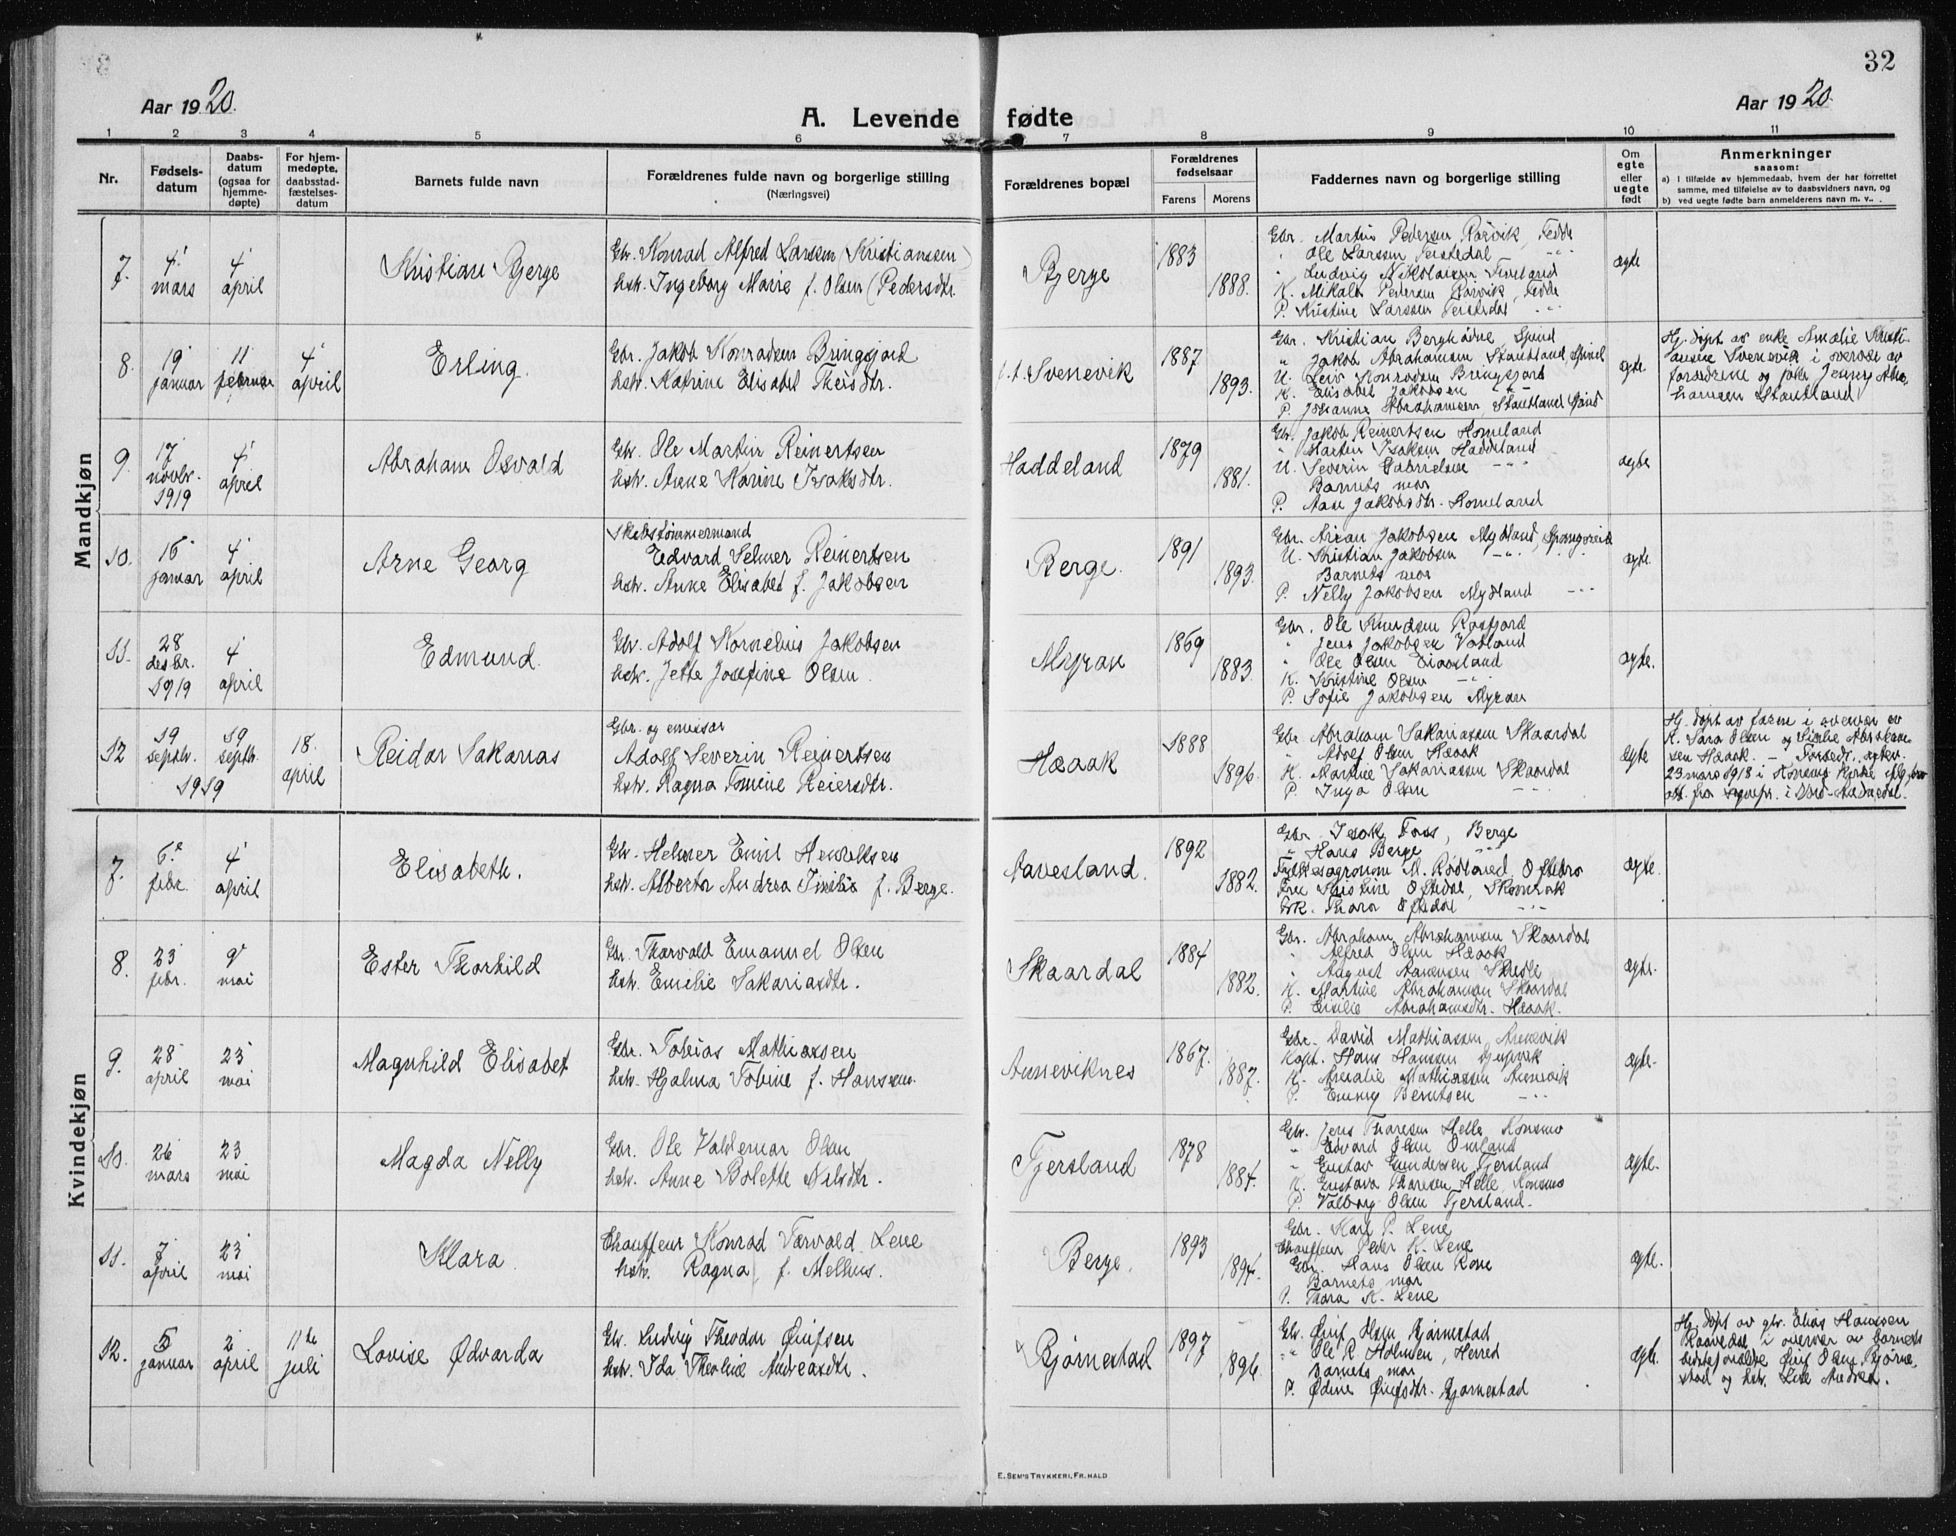 32
Aar 1920.
A. Levende fødte
Aar 1920.
1 2 3 4 5 6 7 8 9 10 11
Nr.
Fødsels-
datum
Daabs-
datum
(ogsaa for
hjemme-
døpte)
For hjem-
medøpte,
daabsstad-
fæstelses-
datum
Barnets fulde navn
Forældrenes fulde navn og borgerlige stilling
(Næringsvei)
Forældrenes bopæl
Forældrenes
fødselsaar
Farens Morens
Faddernes navn og borgerlige stilling
Om
egte
eller
uegte
født
Anmerkninger
saasom:
a) I tilfælde av hjemmedaab, hvem der har forrettet
samme, med tilføielse av to daabsvidners navn, og
b) ved uegte fødte barn anmelderens navn m. v..
Mandkjøn
7.
4.
mars
4
april
Kristian Bjerge
Gbr. Konrad Alfred Larssen (Kristiansen)
hstr. Ingeborg Marie f. Olsen (Pedersdtr.
Bjerge
1883
1888.
Gbr. Martin Pedersen Rørvik, Fedde
" Ole Larssen
" Ludvig Nikolaisen
K. Mikal Pedersen Rørvik, Fedde
P. Kristine Larssen
ægte
8.
19
januar
11
februar
4
april
Erling.
Gbr. Jakob Konradsen Bringsjord
hstr. Katrine Elisabet Theisdtr.
Svenevik
1887
1893.
Gbr. Kristian Berghødne Spind
" Jakob Abrahamsen Stautland, Spind
U. Leiv Konradsen Bringsjord
K. Elisabet Jakobsen
P. Josianne Abrahamsen, Stautland Spind
ægte
Hj. døpt av enke Amalie Kristi-
ansen Svenevik i overvær av
forældrene og Jenny Abra-
hamsen Stautland
9.
17
novbr.
1919
4
april
Abraham Osvald
Gbr. Ole Martin Reinertsen
hstr. Anne Karine Isaksdtr.
Haddeland
1879
1881.
Gbr. Jakob Reinertsen Homeland
" Martin Isaksen Haddeland
U. Severin Gabrielsen
Barnets mor
P. Aase Jakobsdtr. Homeland
ægte
10.
15
januar
4
april
Arne Georg
Skibstømmermand
Edvard Selmer Reinertsen
hstr. Anne Elisabet f. Jakobsen
Berge.
1891
1893.
Gbr. Jakobsen Mydland,
U. Kristian Jakobsen
Barnets mor
P. Nelly Jakobsen Mydland
ægte.
11.
28
desbr.
1919
4
april
Edmund.
Gbr. Adolf Kornelius Jakobsen
hstr. Jette Josefine Olsen.
Myran
1869
1883.
Gbr. Ole Knudsen Rosfjord
" Jens Jakobsen Vatland
" Ole Olsen
K. Kristine Olsen
P. Sofie Jakobsen Myran
ægte.
12
19
septbr.
1919
19
septbr.
18.
april
Reidar Sakarias
Gbr. og emissær
Adolf Severin Reinertsen
hstr. Ragna Tomine Reiersdtr.
Hæaak
1888
1896.
Gbr. Abraham Sakariassen Skaardal
" Adolf Olsen Hæaak
K. Martine Sakariassen Skaardal
P. Inga Olsen
ægte
Hj. døpt av faren i overvær av
K. Sara Olsen og Abraham-
sen Hæaak. — Forældr. egtev.
23 mars 1918 i Konsmo kirke
att. fra sognepr. i Nord-Audnedal.
Kvindekjøn
7.
6.
febr.
4
april
Elisabeth.
Gbr. Helmer Emil Henriksen
hstr. Alberta Andrea f. Berge.
Aavesland.
1892
1882.
Gbr. Isak Foss, Berge
" Hans Berge
Fylkesagronom M. Rødland, Oftebro
Fru Kristine Oftedal, Skomrak
Frk. Thora Oftedal
ægte.
8.
23
febr.
9
mai
Ester Thorhild
Gbr. Thorvald Emanuel Olsen
hstr. Emelie Sakariasdtr.
Skaardal
1884
1882.
Gbr. Abraham Abrahamsen Skaardal
" Alfred Olsen Hæaak
" August Aanensen
K. Martine Abrahamsen Skaardal
P. Emilie Abrahamsdtr. Hæaak.
ægte.
9.
28
april
23
mai
Magnhild Elisabet
Gbr. Tobias Mathiassen
hstr. Hjalma Tobine f. Hanssen.
Anneviknes
1867.
1887.
Gbr. David Mathiassen, Annevik
Kapt. Hans Hanssen
K. Amalie Mathiassen Annevik
P. Emmy Berntsen
ægte.
10.
26
mars
23
mai
Magda Nelly
Gbr. Ole Valdemar Olsen
hstr. Anne Bolette Nilsdtr.
Fjersland
1878
1884.
Gbr. Jens Thoresen Helle Konsmo
" Edvard Olsen Omland
" Gustav Gundersen Fjersland
K. Gustava Thoresen Helle, Konsmo
P. Valborg Olsen Fjersland.
ægte.
11.
7
april
23
mai
Klara.
Chauffeur Konrad Torvald Lene
hstr. Ragna f. Melhus.
Berge.
1893
1894.
Gbr. Karl P. Lene
Chauffeur Peder K. Lene
Gbr. Hans Olsen Rone
Barnets mor
P. Thora K. Lene
ægte.
12.
5
januar
2
april
11te
juli
Lovise Ødvarda
Gbr. Ludvig Theodor Øuifsen
hstr. Ida Theoline Andreasdtr.
Bjørnestad
1897
1896.
Gbr. Øuif Olsen Bjørnestad
" Ole R. Holmsen, Herred
Barnets mor
P. Ødine Øuifsdtr. Bjørnestad
ægte.
Hj. døpt av gbr. Elias Hanssen
i overvær av barnets
bedsteforældre Øuif Olsen Bjørne-
stad og hstr. Lise Andrea.
E. SEM'S TRYKKERI, FR.HALD